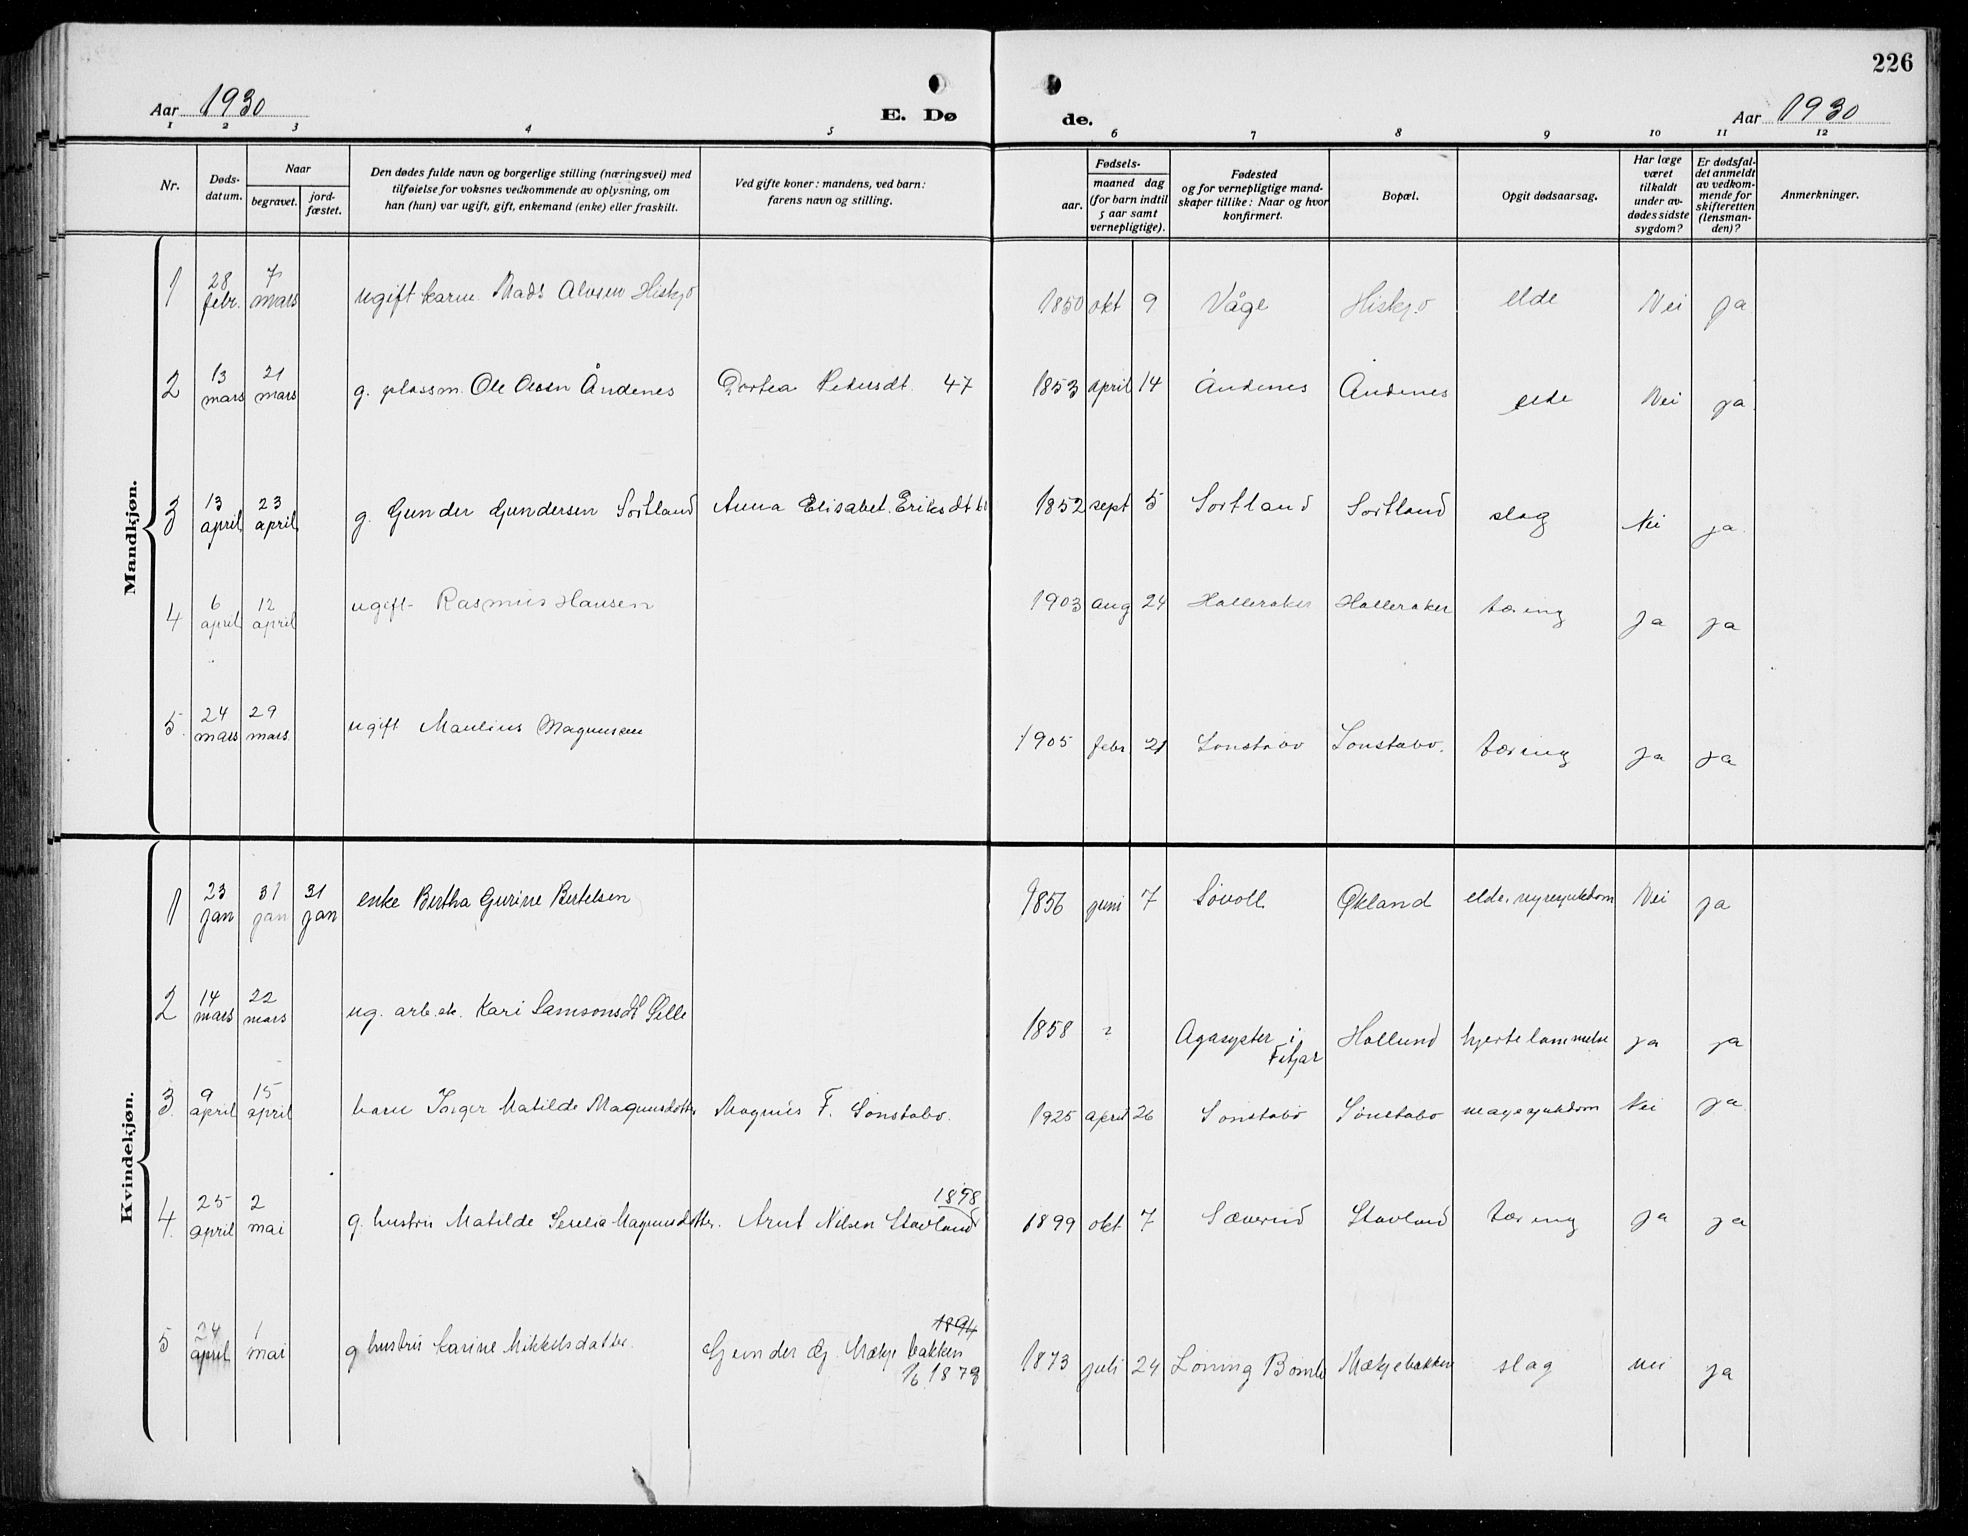 226
Aar 1930
E. Dø
de.
Aar 1930
1 2 3 4 5 6 7 8 9 10 11 12
Nr.
Døds-
datum.
Naar
begravet.
jord-
fæstet.
Den dødes fulde navn og borgerlige stilling (næringsvei) med
tilføielse for voksnes vedkommende av oplysning, om
han (hun) var ugift, gift, enkemand (enke) eller fraskilt.
Ved gifte koner: mandens, ved barn:
farens navn og stilling.
Fødsels-
aar.
maaned dag
(for barn indtil
5 aar samt
vernepligtige).
Fødested
og for vernepligtige mand-
skaper tillike: Naar og hvor
konfirmert.
Bopæl.
Opgit dødsaarsag.
Har læge
været
tilkaldt
under av-
dødes sidste
sygdom?
Er dødsfal-
det anmeldt
av vedkom-
mende for
skifteretten
(lensman-
den)?
Anmerkninger.
Mandkjøn.
1 28 febr. 7 mars ugift karm. Mads Olsen Hiskjo 1850 okt 9 Våge Hiskjo elde Nei ja
2 13 mars 21 mars g. plassm. Ole Olsen Åndenes Dortea Pedersdt. 47 1853 april 14 Åndenes Åndenes elde Nei ja.
3 13 april 23 april g. Gunder Gundersen Sortland Anna Elisabet Eriksdt 1852 sept 5 Sortland Sortland slag Nei ja.
4 6 april 12 april ugift Rasmus Hansen 1903 aug 24 Halleraker Halleraker tæring ja ja
5. 24 mars 29 mars. ugift Maulius Magnussen 1905 febr 21 Sonstabo Sonstabo. tæring ja ja
Kvindekjøn.
1 23 jan 31 jan 31 jan enke Bertha Gurine Bertelsen 1856 juni 7 Sovoll Økland elde, nyresykdom Nei ja
2 14 mars 22 mars ug. arb.sk. Kari Samsonsdt Sille 1858 ? Agasyster i Fitjar Hollund hjertelammelse ja ja
3. 9 april 15 april barn Inger Matilde Magnusdotter Magnus F. Sonstabo. 1925 april 26 Sonstabo Sonstabo magesykdom Nei ja
4. 25 april 2 mai g. hustru Matilde Serelia Magnusdotter. Arnt Nilsen Stavland 1898 1899 okt 7 Sæverud Stavland tæring ja ja
5 24 april 1 mai g hustru Karine Mikkelsdatter Gunder G. Mækjebakken 1894 1/6 1873 1873 juli 24 Loning Bomlo Mækjebakken slag nei ja